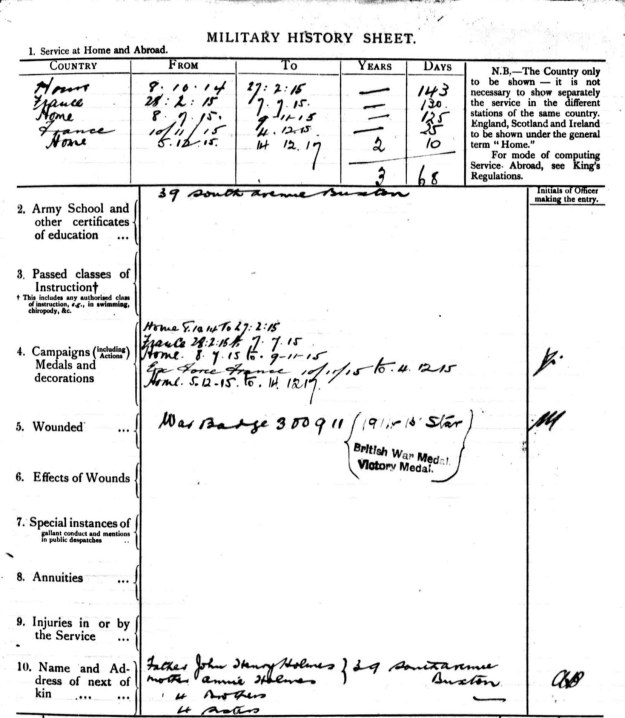 MILITARY HISTORY SHEET.
1. Service at Home and Abroad.
COUNTRY FROM TO YEARS DAYS
Home 8.10.14 27:2:15 — 143
France 28:2:15 7.7.15. — 130.
Home 8.7.15. 9-11-15 — 125
France 10/11/15 4.12.15. — 25
Home 5.12.15. 14 12.17 2 10
3 68
N.B.—The Country only
to be shown — it is not
necessary to show separately
the service in the different
stations of the same country.
England, Scotland and Ireland
to be shown under the general
term "Home."
For mode of computing
Service Abroad, see King's
Regulations.
Initials of Officer
making the entry.
39 South Avenue Buxton
2. Army School and
other certificates
of education ...
3. Passed classes of
Instruction†
† This includes any authorised class
of instruction, e.g., in swimming,
chiropody, &c.
4. Campaigns (including
Actions)
Medals and
decorations
Home 8.10.14 to 27:2:15
France 28:2:15 to 7.7.15
Home. 8.7.15 to. 9-11-15
Ex Force France 10/11/15 to. 4.12 15
Home. 5.12-15. to. 14. 12 17.
5. Wounded ...
War Badge 300911 (1914-15 Star)
British War Medal.
Victory Medal.
6. Effects of Wounds
7. Special instances of
gallant conduct and mentions
in public despatches ..
8. Annuities ...
9. Injuries in or by
the Service ...
10. Name and Ad-
dress of next of
kin .... ...
Father John Henry Holmes } 39 South Avenue
mother Annie Holmes Buxton
4 Brothers
4 Sisters